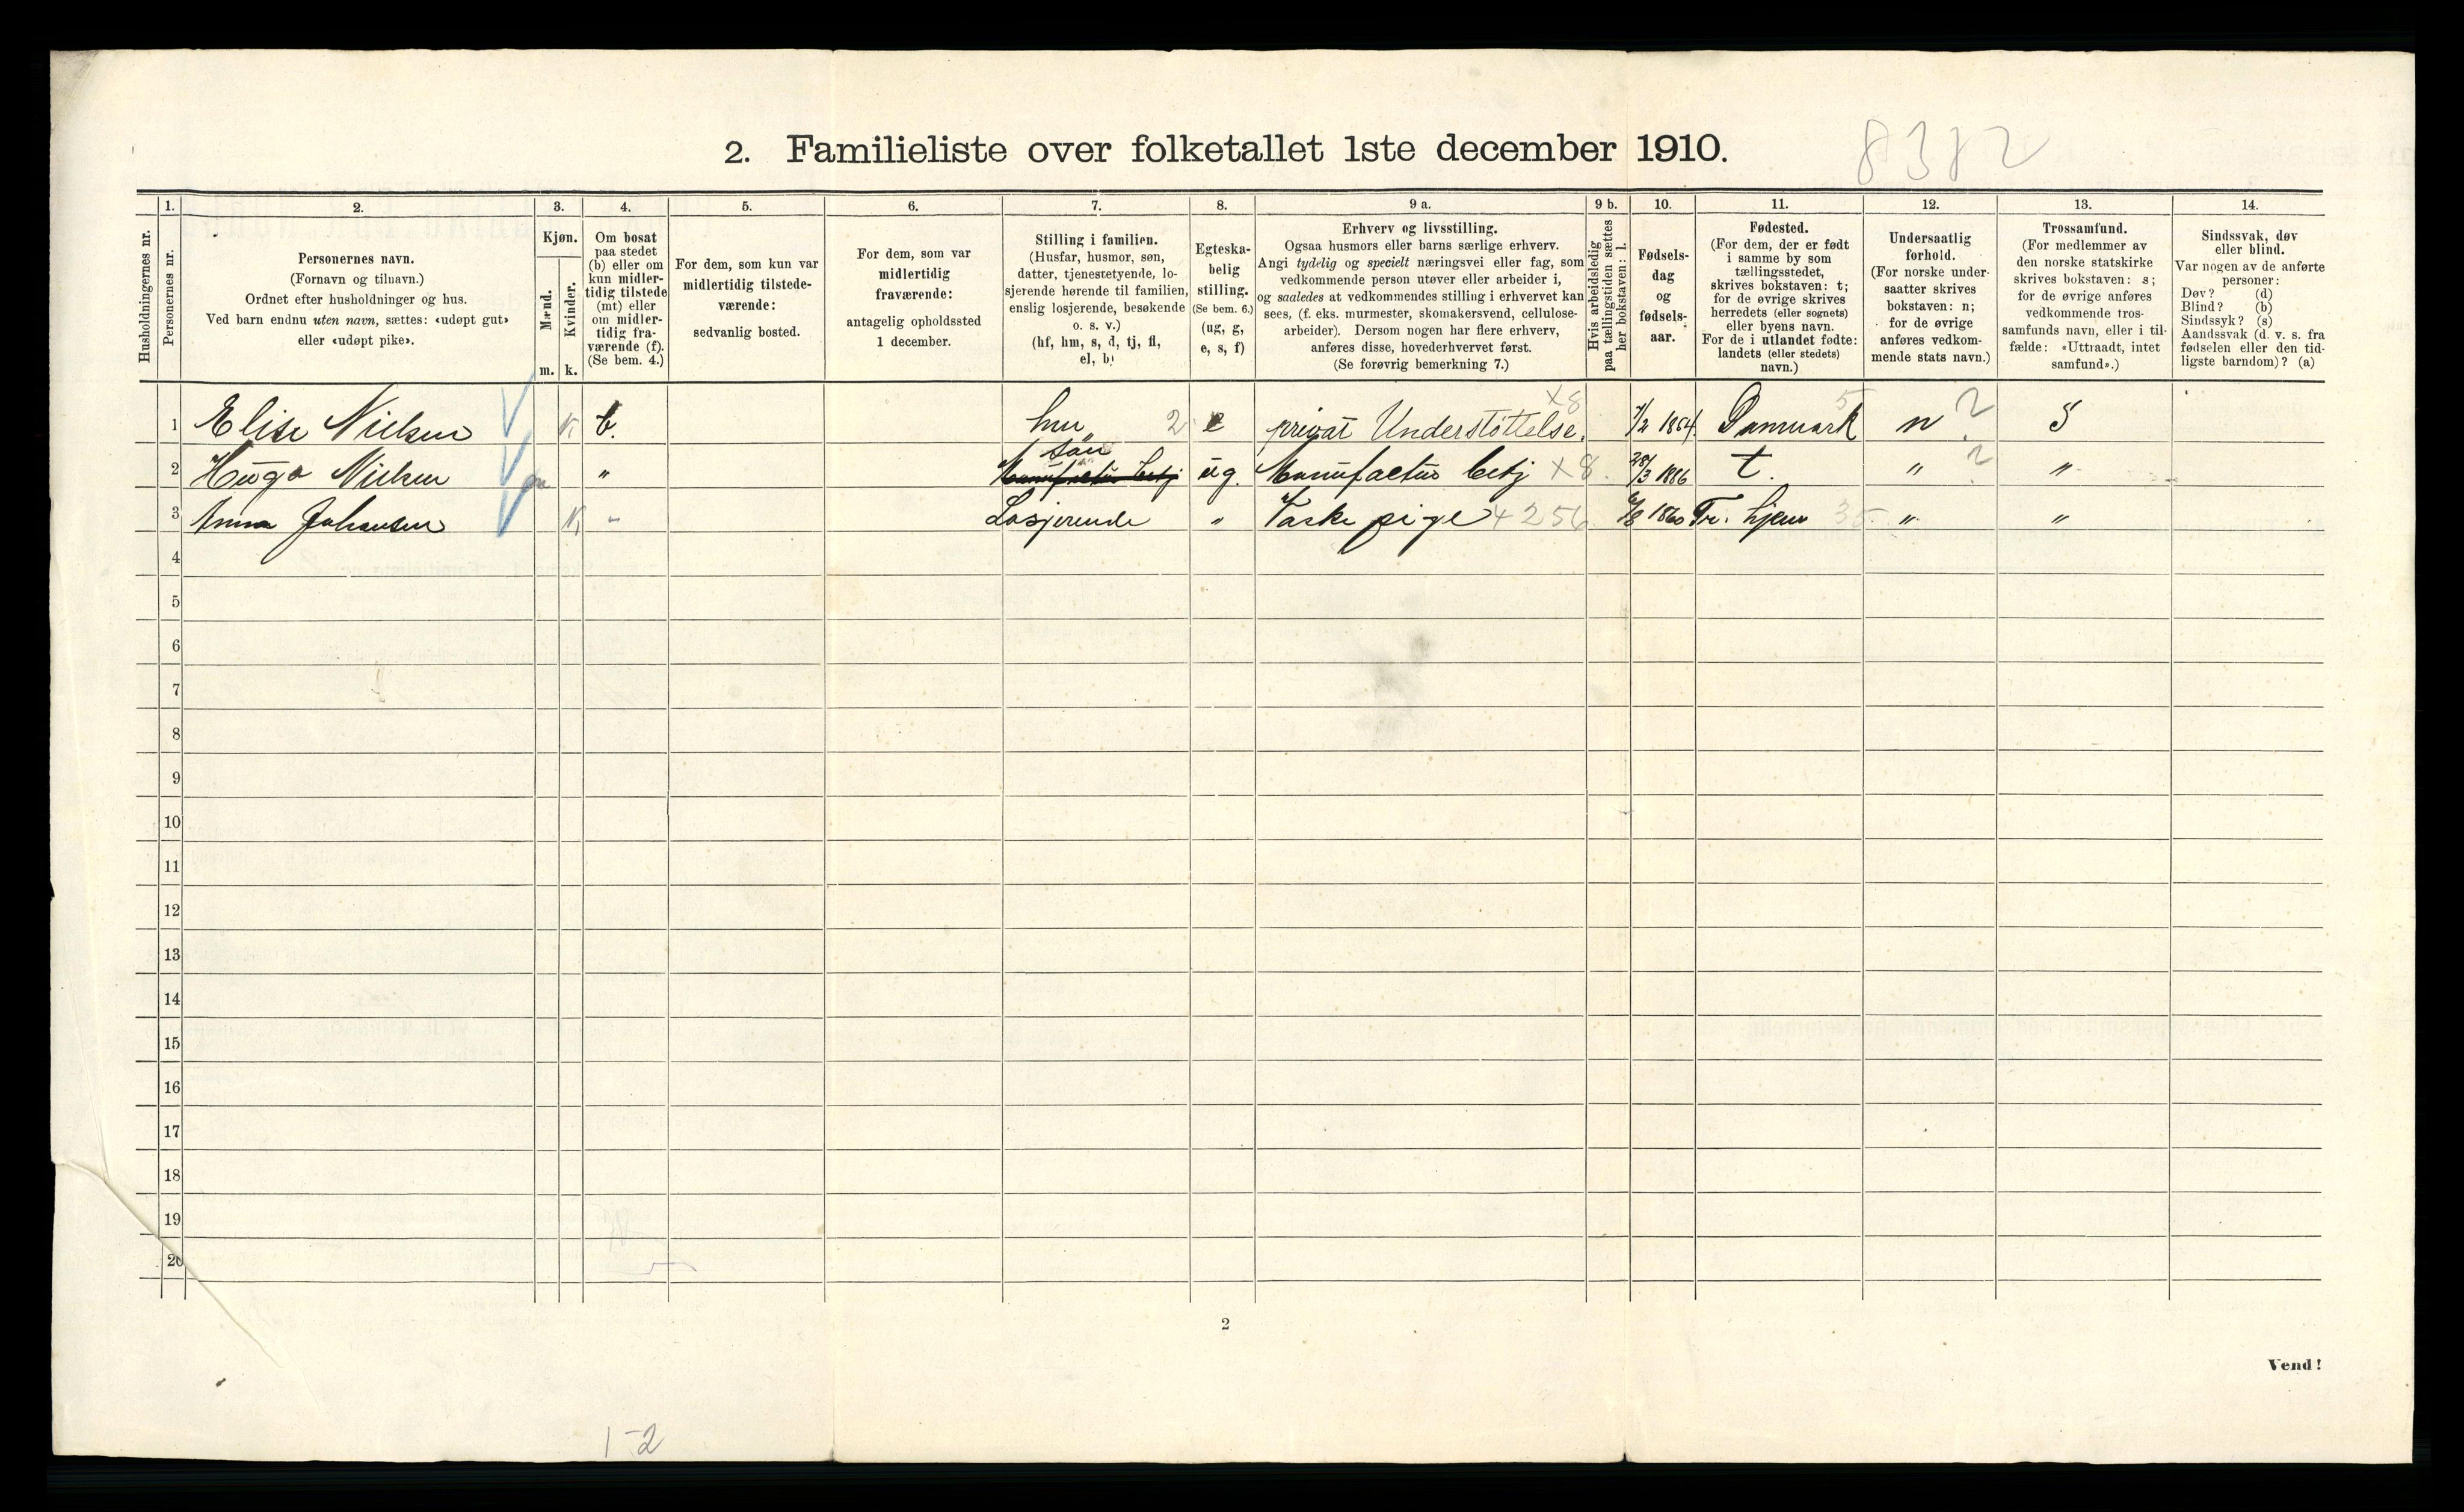 2. Familieliste over folketallet 1ste december 1910.
8382
Husholdningernes nr.
1.
Personernes nr.
2.
Personernes navn.
(Fornavn og tilnavn.)
Ordnet efter husholdninger og hus.
Ved barn endnu uten navn, sættes: «udøpt gut»
eller «udøpt pike».
3.
Kjøn.
Mænd.
Kvinder.
m. k.
4.
Om bosat
paa stedet
(b) eller om
kun midler-
tidig tilstede
(mt) eller
om midler-
tidig fra-
værende (f).
(Se bem. 4.)
5.
For dem, som kun var
midlertidig tilstede-
værende:
sedvanlig bosted.
6.
For dem, som var
midlertidig
fraværende:
antagelig opholdssted
1 december.
7.
Stilling i familien.
(Husfar, husmor, søn,
datter, tjenestetyende, lo-
sjerende hørende til familien,
enslig losjerende, besøkende
o. s. v.)
(hf, hm, s, d, tj, fl,
el, b)
8.
Egteska-
belig
stilling.
(Se bem. 6.)
(ug, g,
e, s, f)
9 a.
Erhverv og livsstilling.
Ogsaa husmors eller barns særlige erhverv.
Angi tydelig og specielt næringsvei eller fag, som
vedkommende person utøver eller arbeider i,
og saaledes at vedkommendes stilling i erhvervet kan
sees, (f. eks. murmester, skomakersvend, cellulose-
arbeider). Dersom nogen har flere erhverv,
anføres disse, hovederhvervet først.
(Se forøvrig bemerkning 7.)
9 b.
Hvis arbeidsledig
paa tællingstiden sættes
her bokstaven: l.
10.
Fødsels-
dag
og
fødsels-
aar.
11.
Fødested.
(For dem, der er født
i samme by som
tællingsstedet,
skrives bokstaven: t;
for de øvrige skrives
herredets (eller sognets)
eller byens navn.
For de i utlandet fødte:
landets (eller stedets)
navn.)
12.
Undersaatlig
forhold.
(For norske under-
saatter skrives
bokstaven: n;
for de øvrige
anføres vedkom-
mende stats navn.)
13.
Trossamfund.
(For medlemmer av
den norske statskirke
skrives bokstaven: s;
for de øvrige anføres
vedkommende tros-
samfunds navn, eller i til-
fælde: «Uttraadt, intet
samfund».)
14.
Sindssvak, døv
eller blind.
Var nogen av de anførte
personer:
Døv? (d)
Blind? (b)
Sindssyk? (s)
Aandssvak (d. v. s. fra
fødselen eller den tid-
ligste barndom)? (a)
1 Elise Nielsen k b. hm 2 e privat Understöttelse. x8 7/2 1854. Danmark 5 n ? S
2 Hugo Nielsen m " sön Manufaktur betj ug. Manufaktur betj x8 28/3 1886 t. " ? "
3 Anna Johansen k " Losjerende " Vaskepige 4256 6/8 1860 Tr. hjem 35 " "
4
5
6
7
8
9
10
11
12
13
14
15
16
17
18
19
20
2
Vend!
1-2